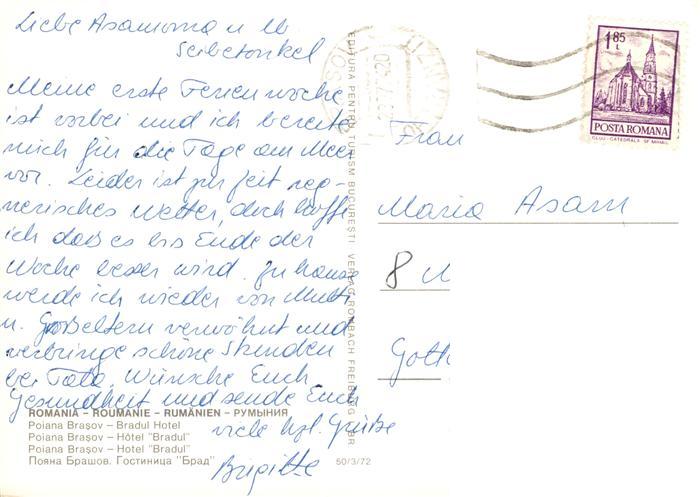 Liebe Asamoma u. Ub
Seibetonkel
Meine erste Ferienwoche
ist vorbei und ich bereite
mich für die Tage am Meer
vor. Leider ist zur Zeit reg-
nerisches Wetter, doch hoffe
ich daß es bis Ende der
Woche besser wird. Zu hause
werde ich wieder von Mutti
u. Großeltern verwöhnt und
verbringe schöne Stunden
bei Tata. Wünsche Euch
Gesundheit und sende Euch
viele hzl. Grüße
Brigitte
ROMANIA – ROUMANIE – RUMÄNIEN – РУМЫНИЯ
Poiana Brașov – Bradul Hotel
Poiana Brașov – Hôtel "Bradul"
Poiana Brașov – Hotel "Bradul"
Пояна Брашов. Гостиница "Брад"
50/3/72
EDITURA PENTRU TURISM BUCUREȘTI VERLAG ROMBACH FREIBURG BR
1 85
L
POSTA ROMANA
CLUJ - CATEDRALA SF. MIHAIL
Frau
Maria Asam
8 M
Goth